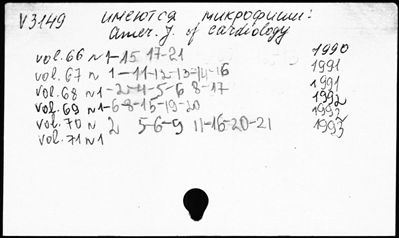 V3149 имеются микрофиши:
Amer. J. of cardiology
vol. 66 n 1-15 17-21 1990
vol. 67 n 1-11-12-13-14-16 1991
vol. 68 n 1-2-4-5-6 8-17 1991
vol. 69 n 1-6-8-15-19-20 1992
vol. 70 n 2 5-6-9 11-16-20-21 1992
vol. 71 n 1 1993